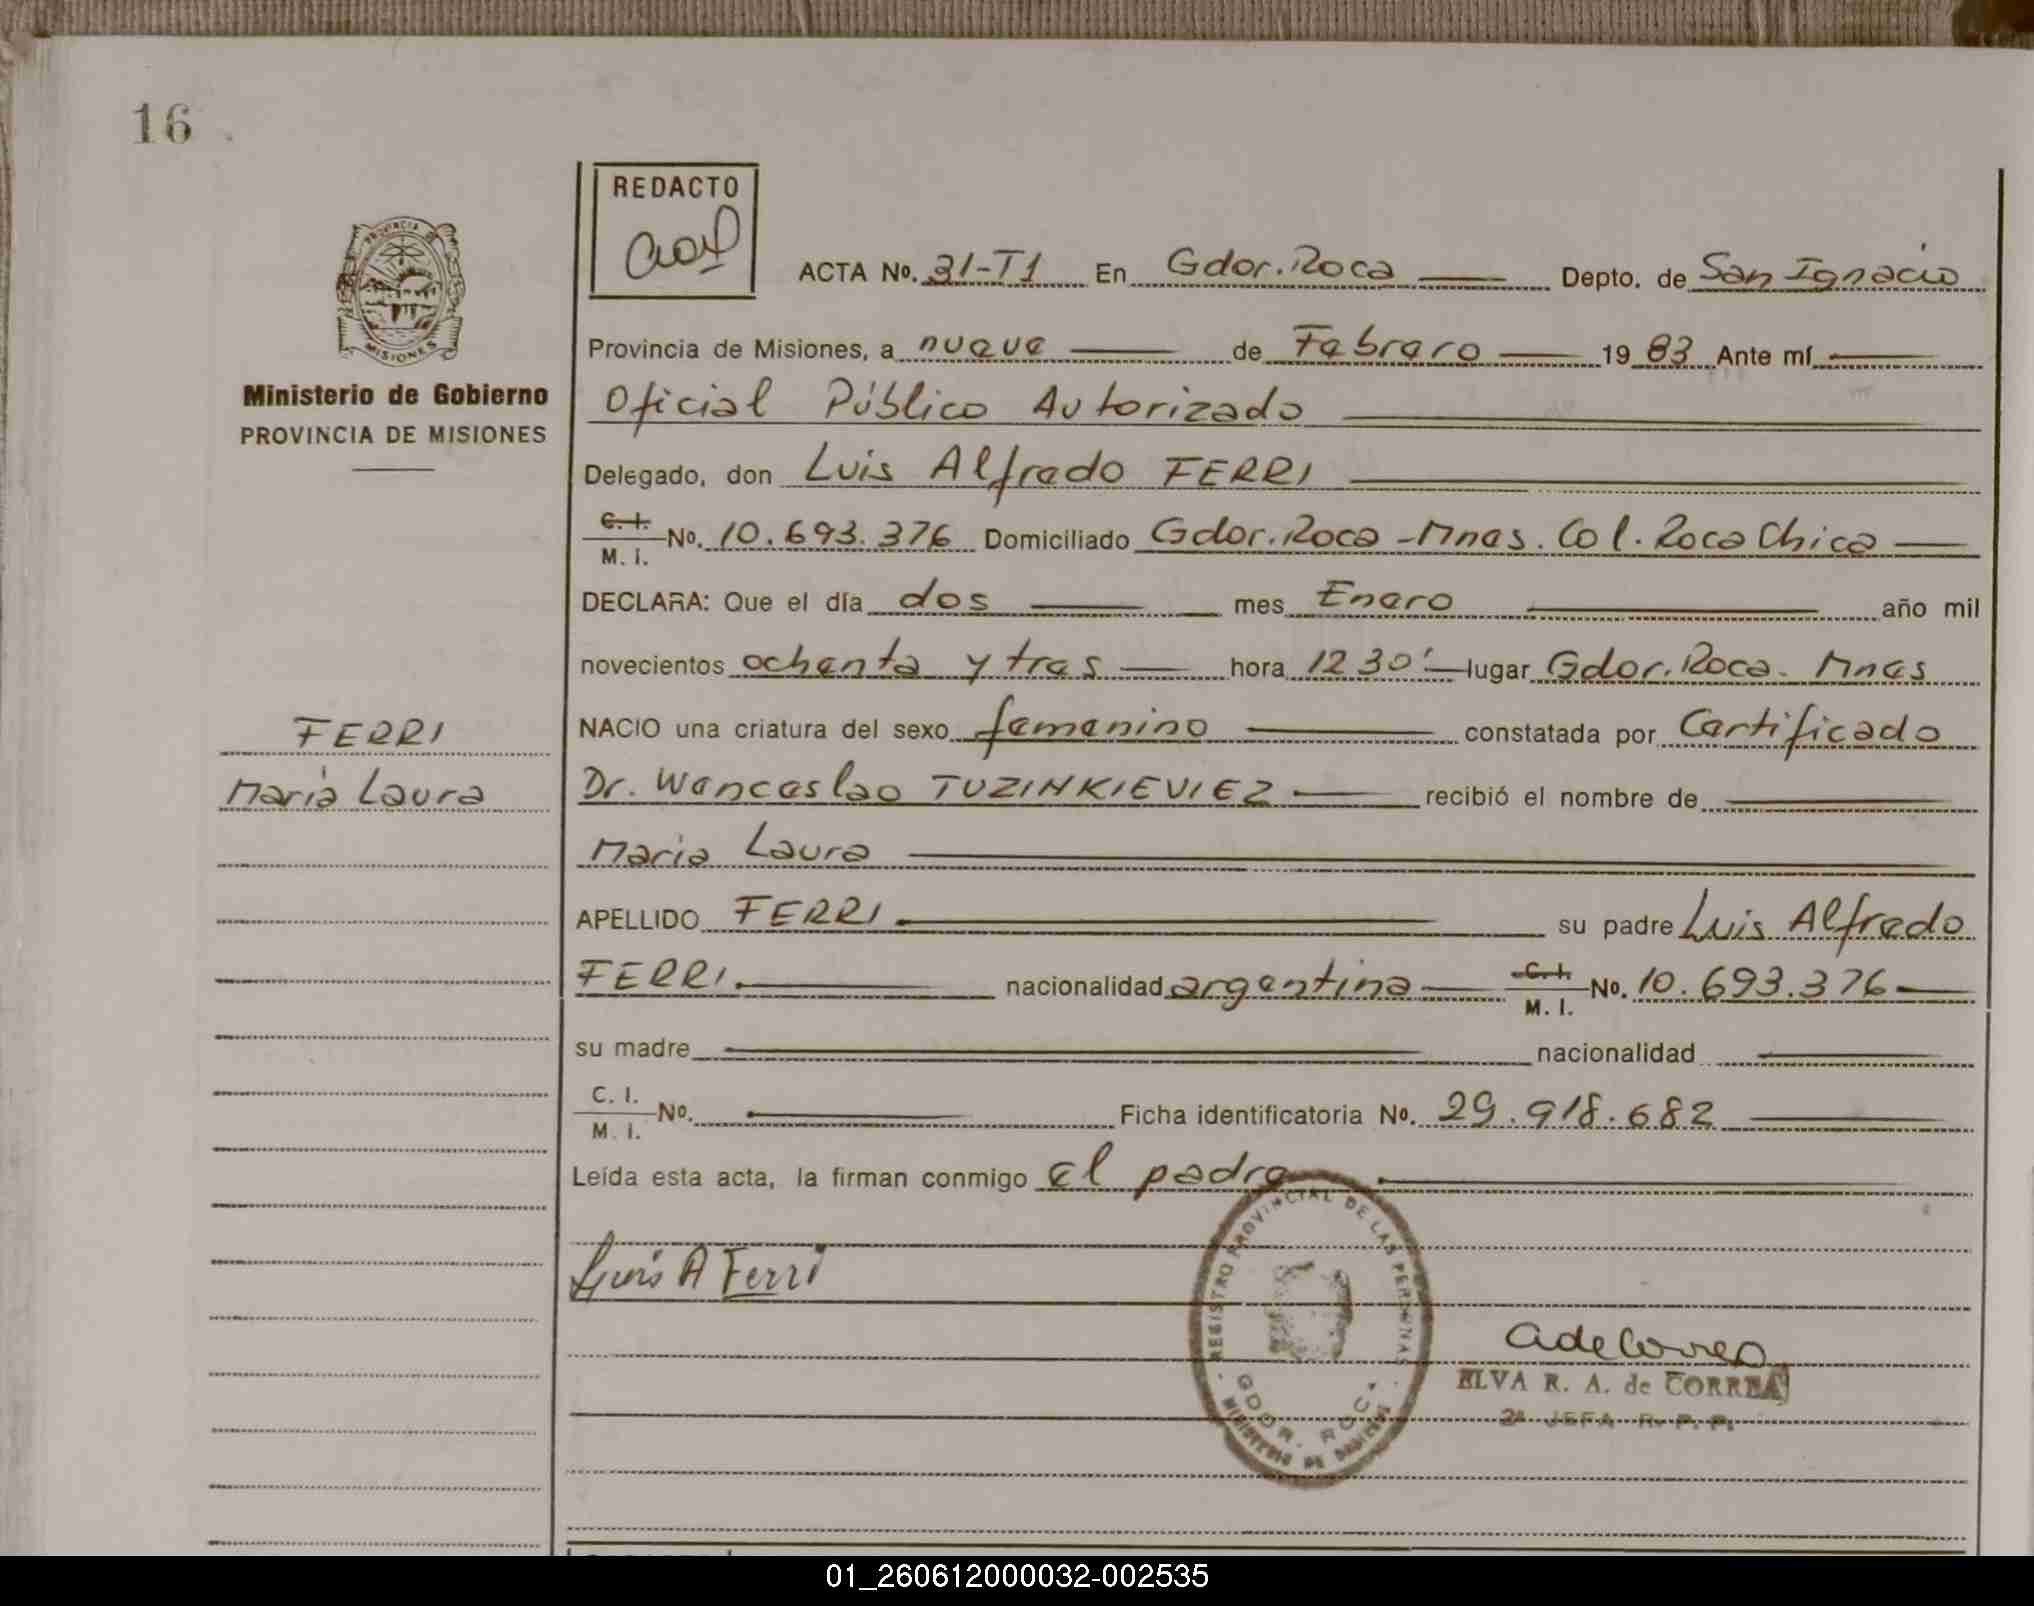 16
REDACTO
PROVINCIA DE
MISIONES
Ministerio de Gobierno
PROVINCIA DE MISIONES
ACTA No. 31-T1 En Gdor. Roca Depto. de San Ignacio
Provincia de Misiones, a nueve de Febrero 1983 Ante mí
Oficial Público Autorizado
Delegado, don Luis Alfredo FERRI
C. I.
M. I. No. 10.693.376 Domiciliado Gdor. Roca - Mnes. Col. Roca Chica
DECLARA: Que el día dos mes Enero año mil
novecientos ochenta y tres hora 12 30' lugar Gdor. Roca. Mnes
FERRI
NACIO una criatura del sexo femenino constatada por Certificado
Maria Laura
Dr. Wenceslao TUZINKIEVIEZ recibió el nombre de
Maria Laura
APELLIDO FERRI su padre Luis Alfredo
FERRI nacionalidad argentina C. I. M. I. No. 10.693.376
su madre nacionalidad
C. I.
M. I. No. Ficha identificatoria No. 29.918.682
Leída esta acta, la firman conmigo el padre
Luis A Ferri
REGISTRO PROVINCIAL DE LAS PERSONAS
GDOR. ROCA
MINISTERIO DE GOBIERNO
ELVA R. A. de CORREA
2ª JEFA R. P. P.
01_260612000032-002535